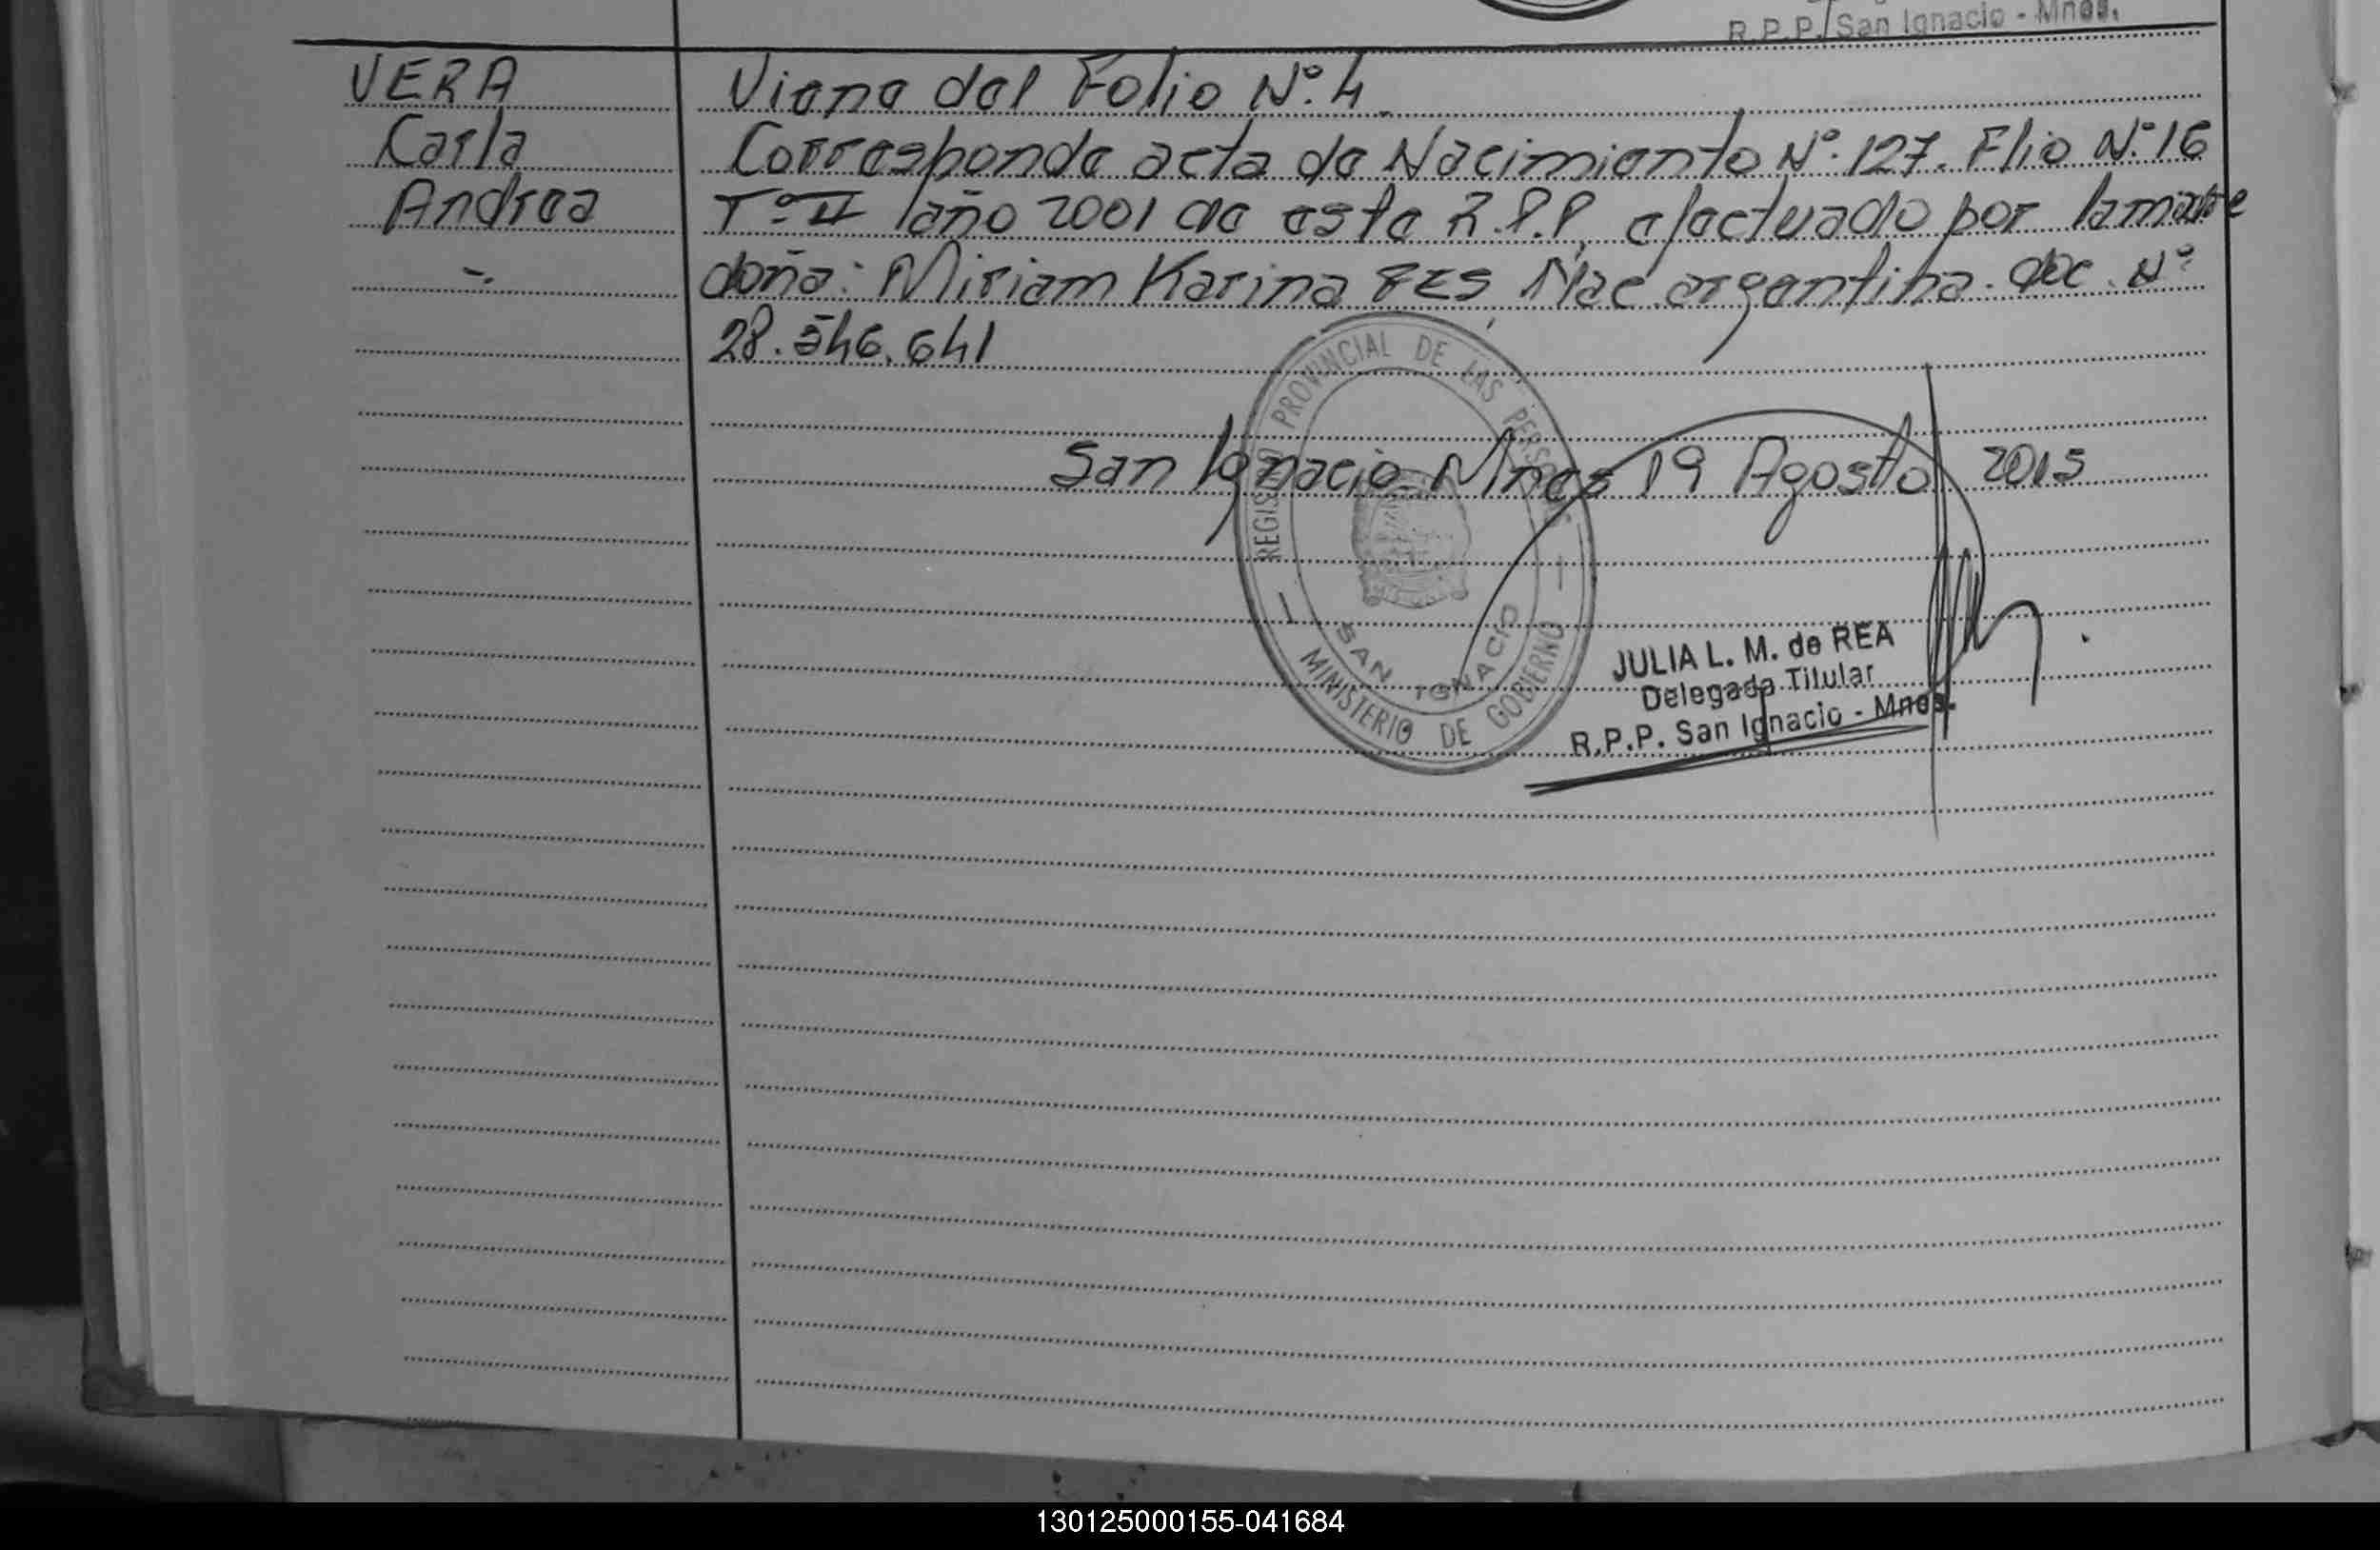 R.P.P. San Ignacio - Mnes.
VERA
Carla
Andrea
Viene del Folio Nº. 4.
Corresponde acta de Nacimiento Nº. 127. Flio Nº 16
Tº II año 2001 de este R.P.P. efectuado por la madre
doña: Miriam Karina Nac. argentina. doc. Nº
28.546.641
San Ignacio Mnes 19 Agosto 2015
REGISTRO PROVINCIAL DE LAS PERSONAS
SAN IGNACIO
MINISTERIO DE GOBIERNO
JULIA L. M. de REA
Delegada Titular
R.P.P. San Ignacio - Mnes.
130125000155-041684